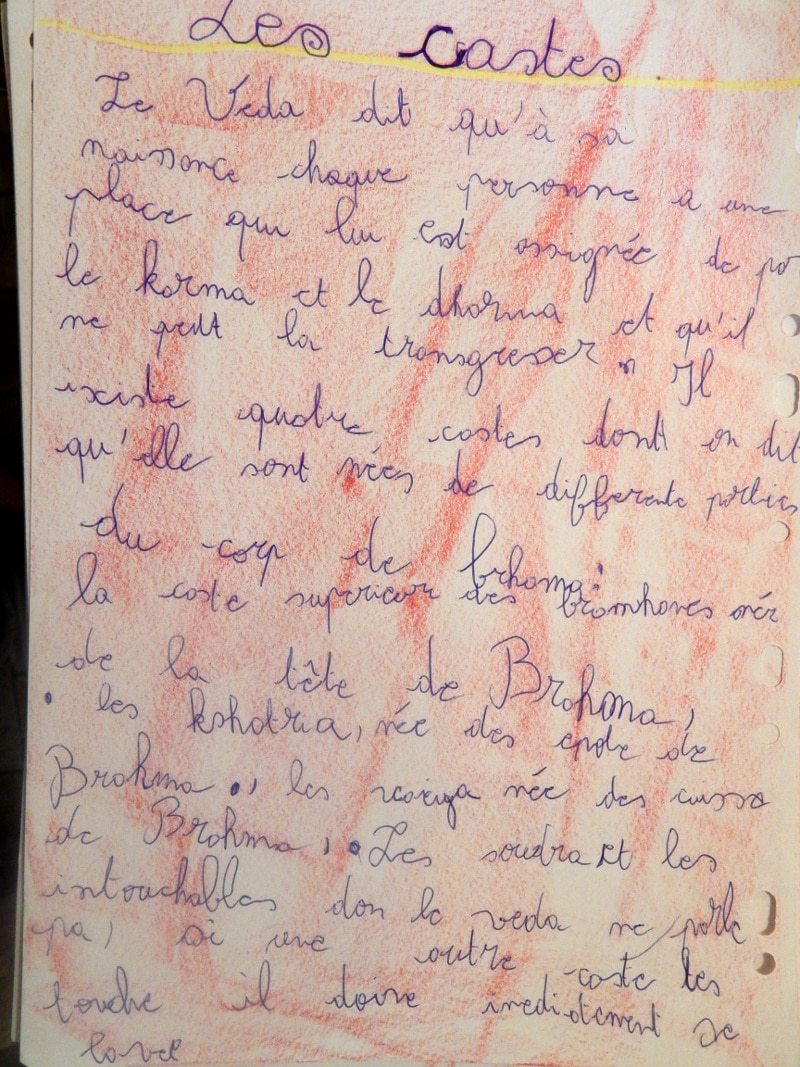 Les castes.
Le Veda dit qu'à sa
naissance chaque personne a une
place qui lui est assignée de pa
le karma et le dharma et qu'il
ne peut la transgresser. Il
existe quatre castes dont on dit
qu'elle sont nées de differente parties
du corp de brhama:
la caste superieur des bramhanes née
de la tête de Brahma,
. les kshatria, née des epale de
Brahma., les née des cuisse
de Brahma, . Les soudra et les
intouchables don le veda ne parle
pa, si une autre caste les
touche il doive imediatement se
lavel